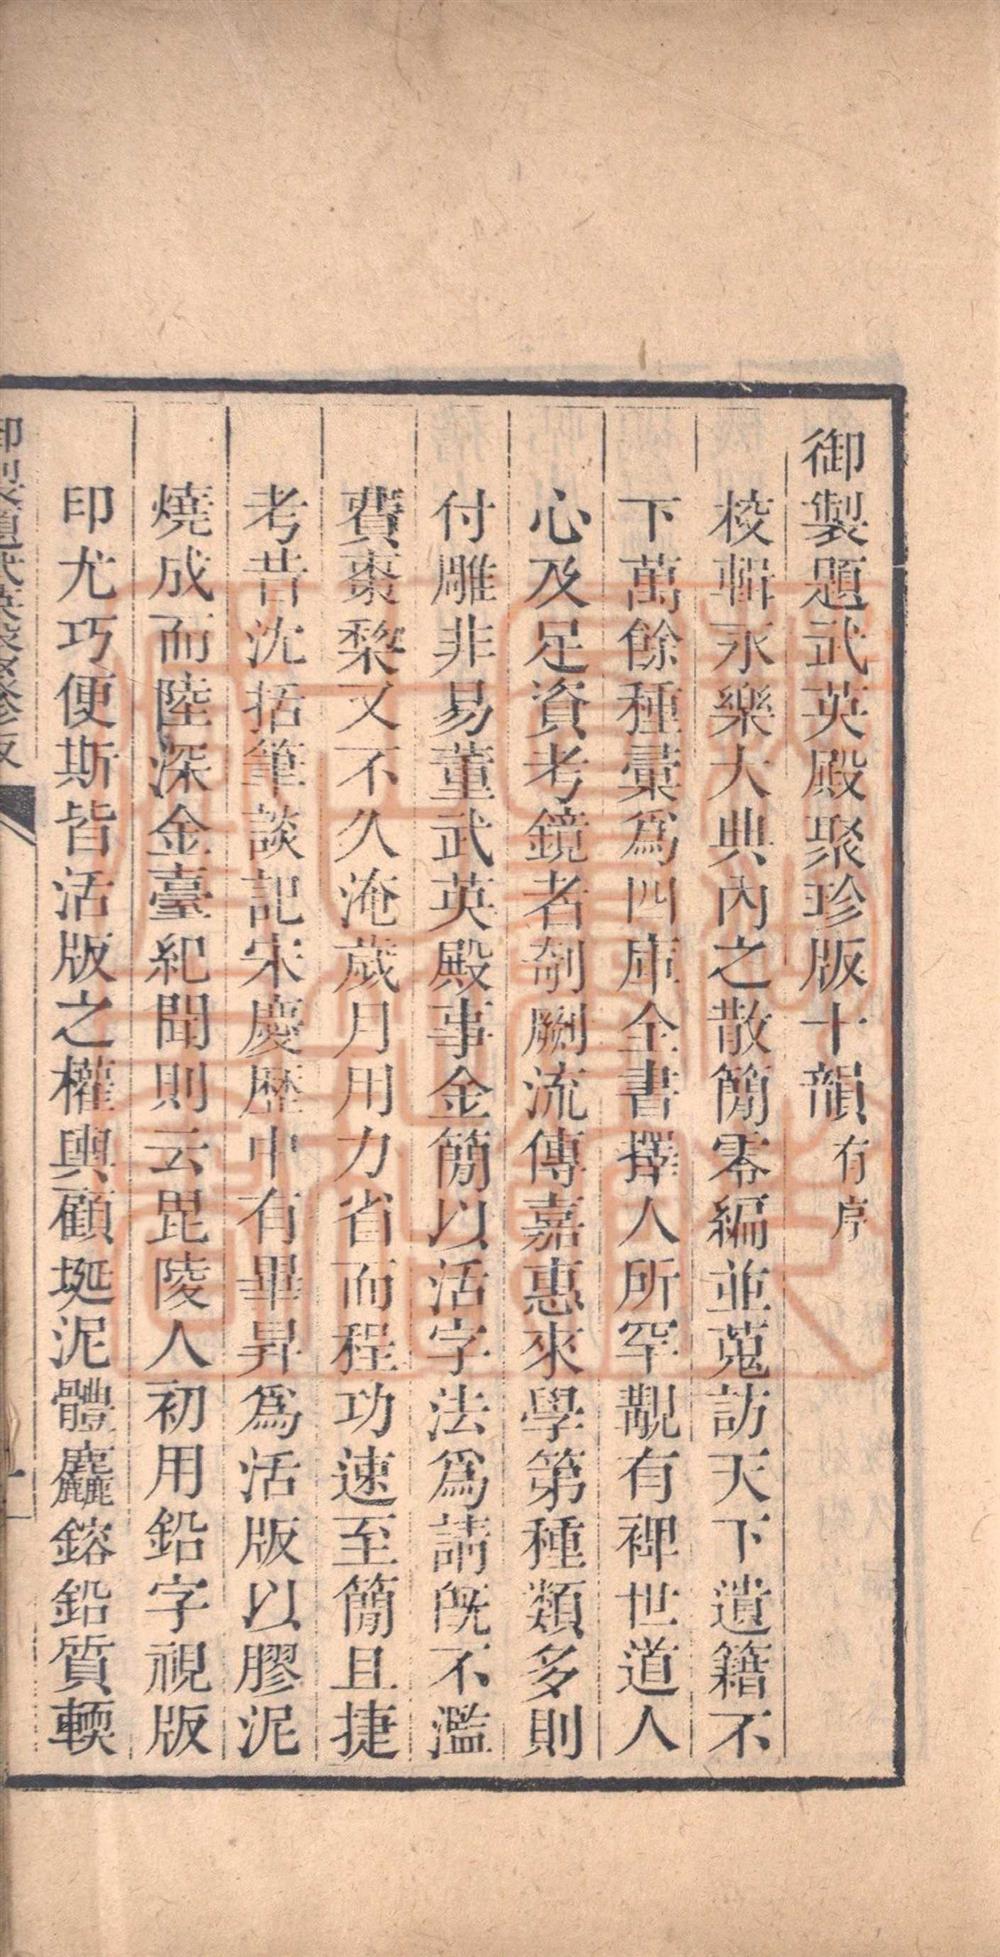 御製題武英殿聚珍版十韻有序
校輯永樂大典內之散簡零編並蒐訪天下遺籍不
下萬餘種彙爲四庫全書擇人所罕覯有裨世道人
心及足資考鏡者剞劂流傳嘉惠來學第種類多則
付雕非易董武英殿事金簡以活字法爲請旣不濫
費棗棃又不久淹歲月用力省而程功速至簡且捷
考昔沈括筆談記宋慶歷中有畢昇爲活版以膠泥
燒成而陸深金臺紀聞則云毘陵人初用鉛字視版
印尤巧便斯皆活版之權輿顧埏泥體麤鎔鉛質輭
御製題武英殿聚珍版
一